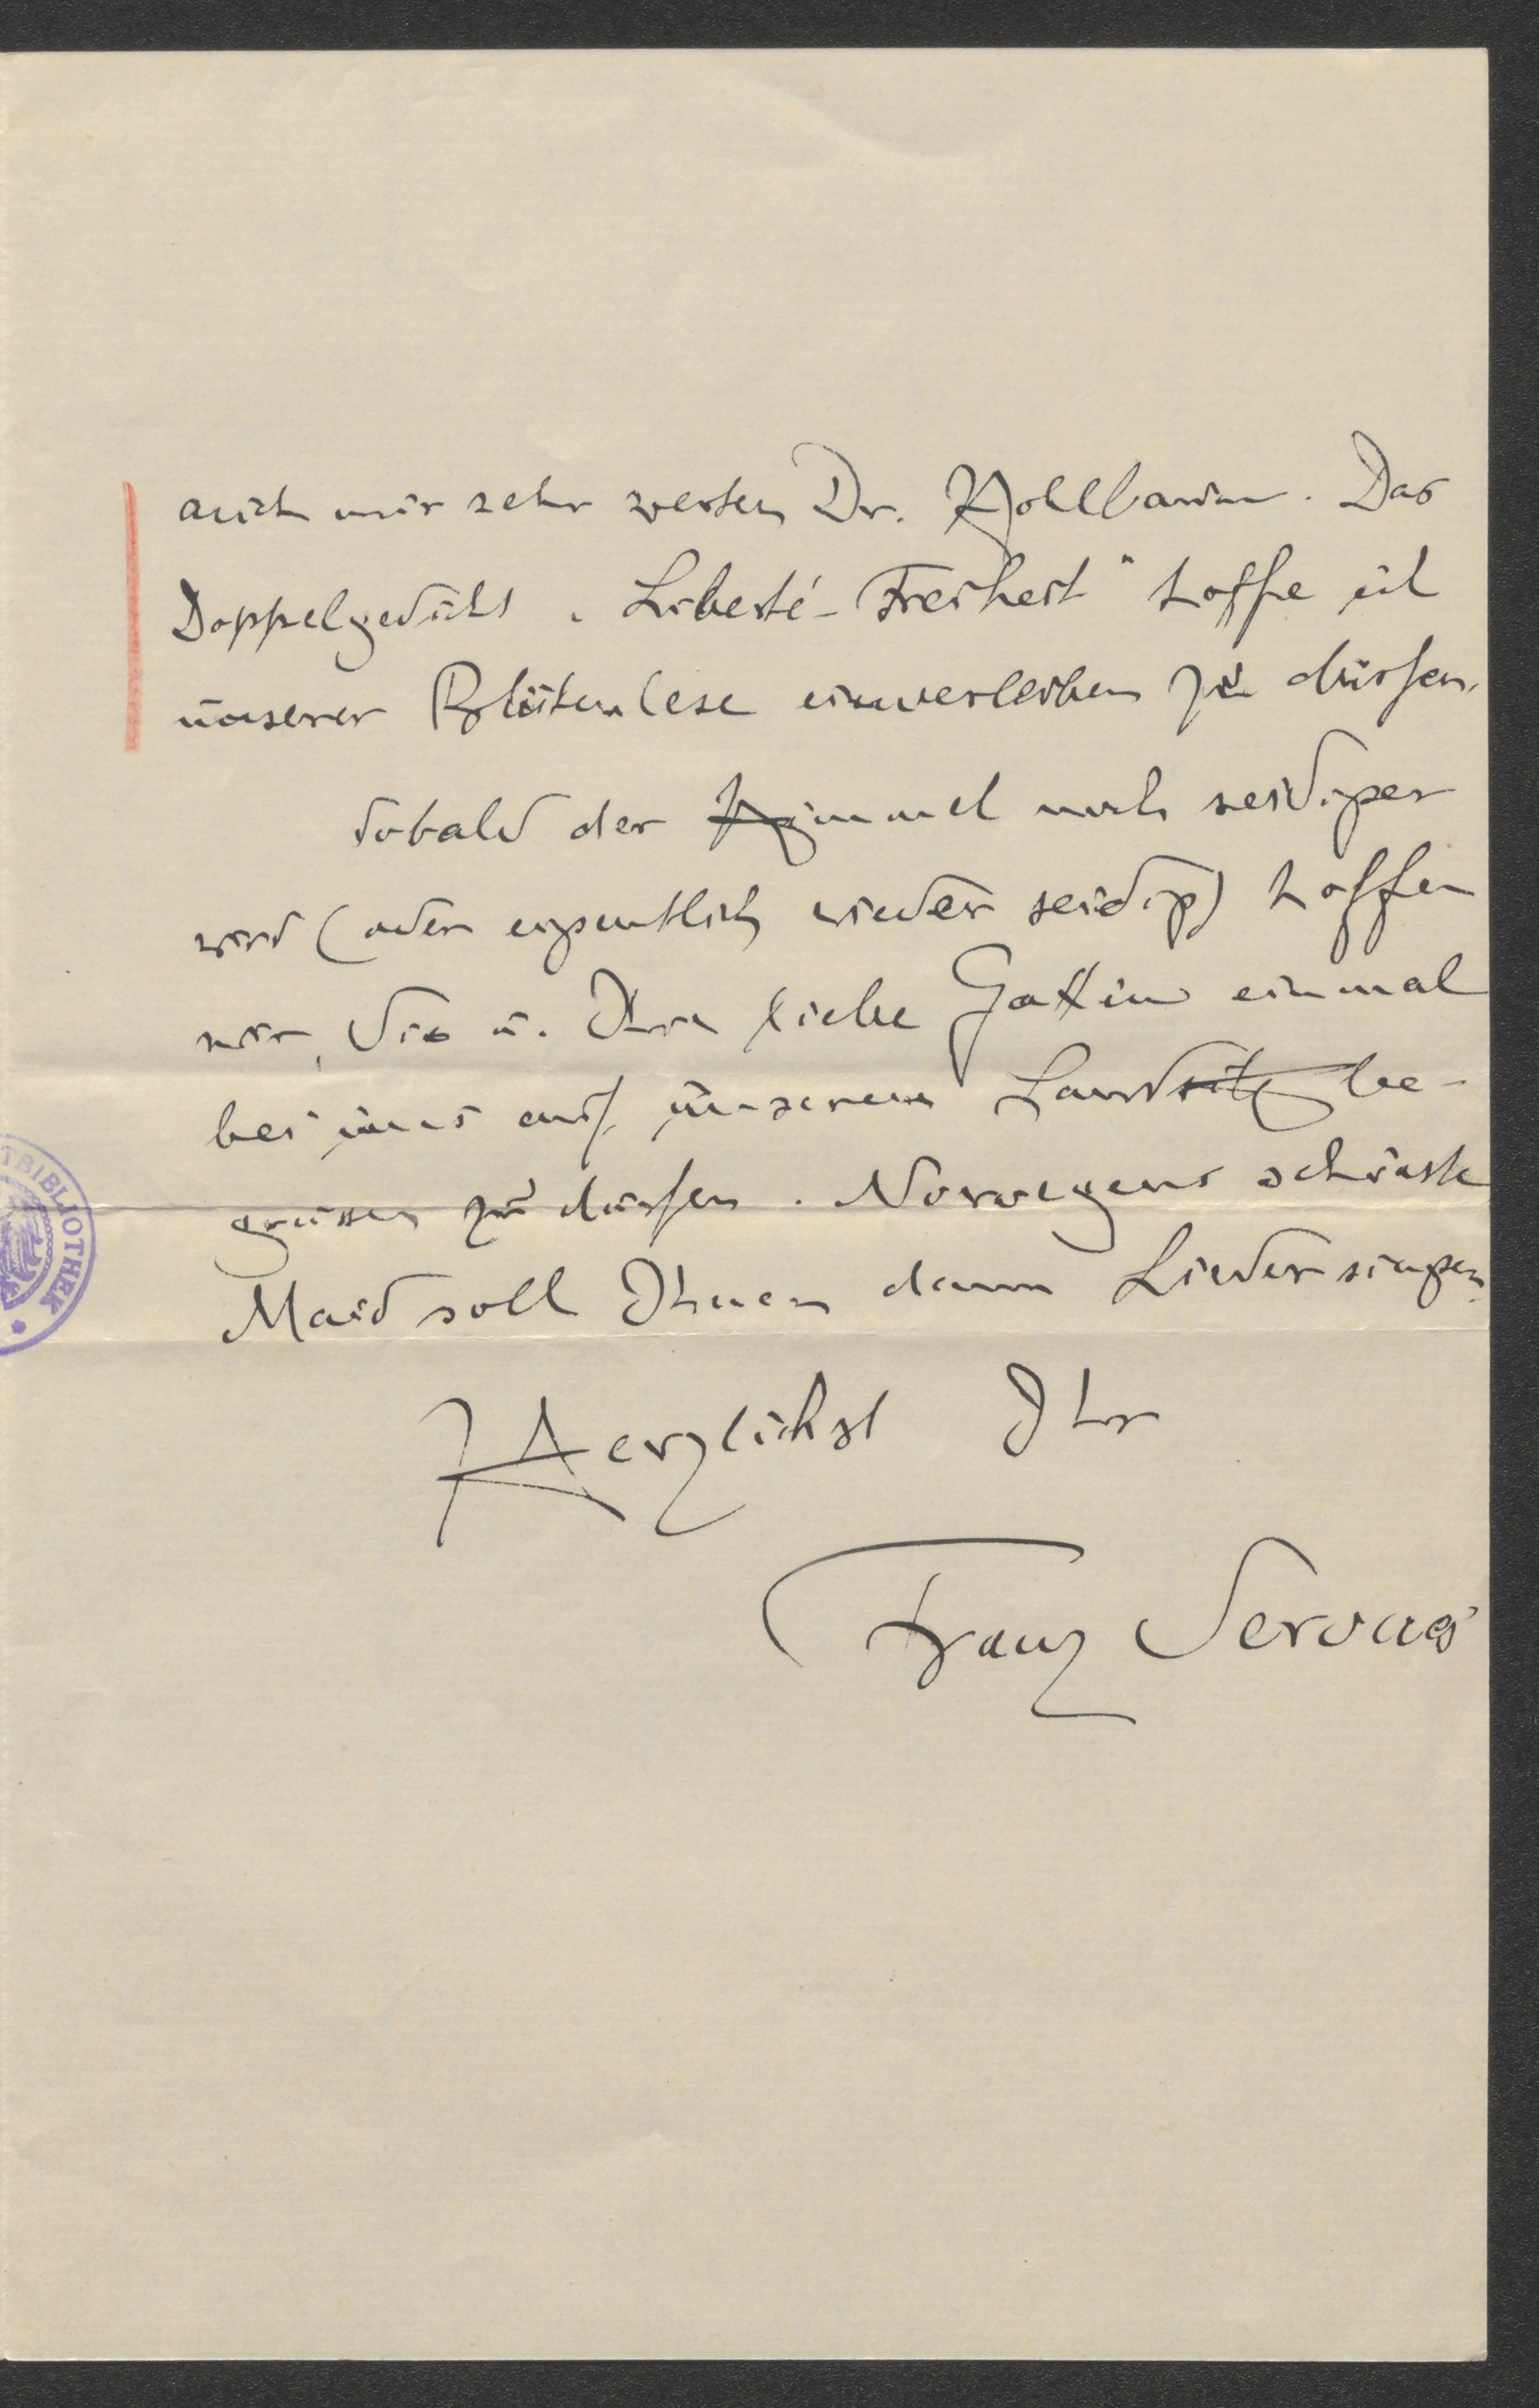 auch mir sehr werten Dr. Hollbaum. Das
Doppelgedicht „Liberté-Freiheit“ hoffe ich
unserer Blütenlese einverleiben zu dürfen.
Sobald der Himmel noch seidiger
wird (oder eigentlich wieder seidig) hoffen
wir, Sie u. Ihre liebe Gattin einmal
bei uns auf unserem Landsitz be-
grüssen zu dürfen. Norwegens
Maid soll Ihnen dann Lieder singen.
Herzlichst Ihr
Franz Servaes
TBIBLIOTHEK